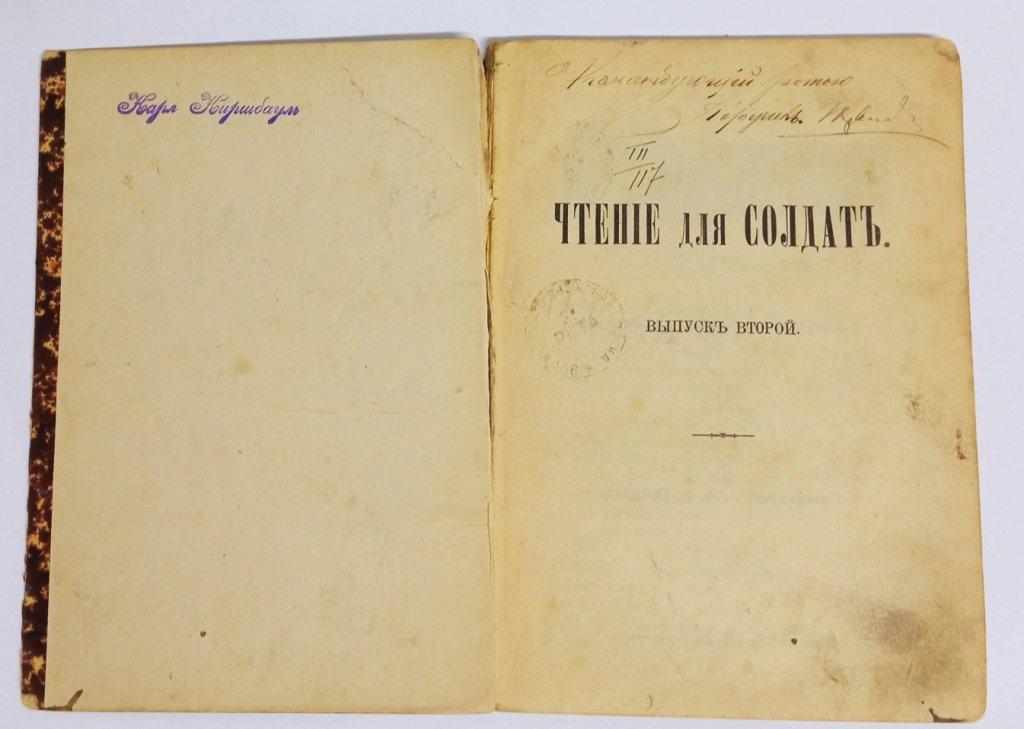 Карл Киршбаум
Командующій ротою
III
117
ЧТЕНІЕ для СОЛДАТЪ.
ВЫПУСКЪ ВТОРОЙ.